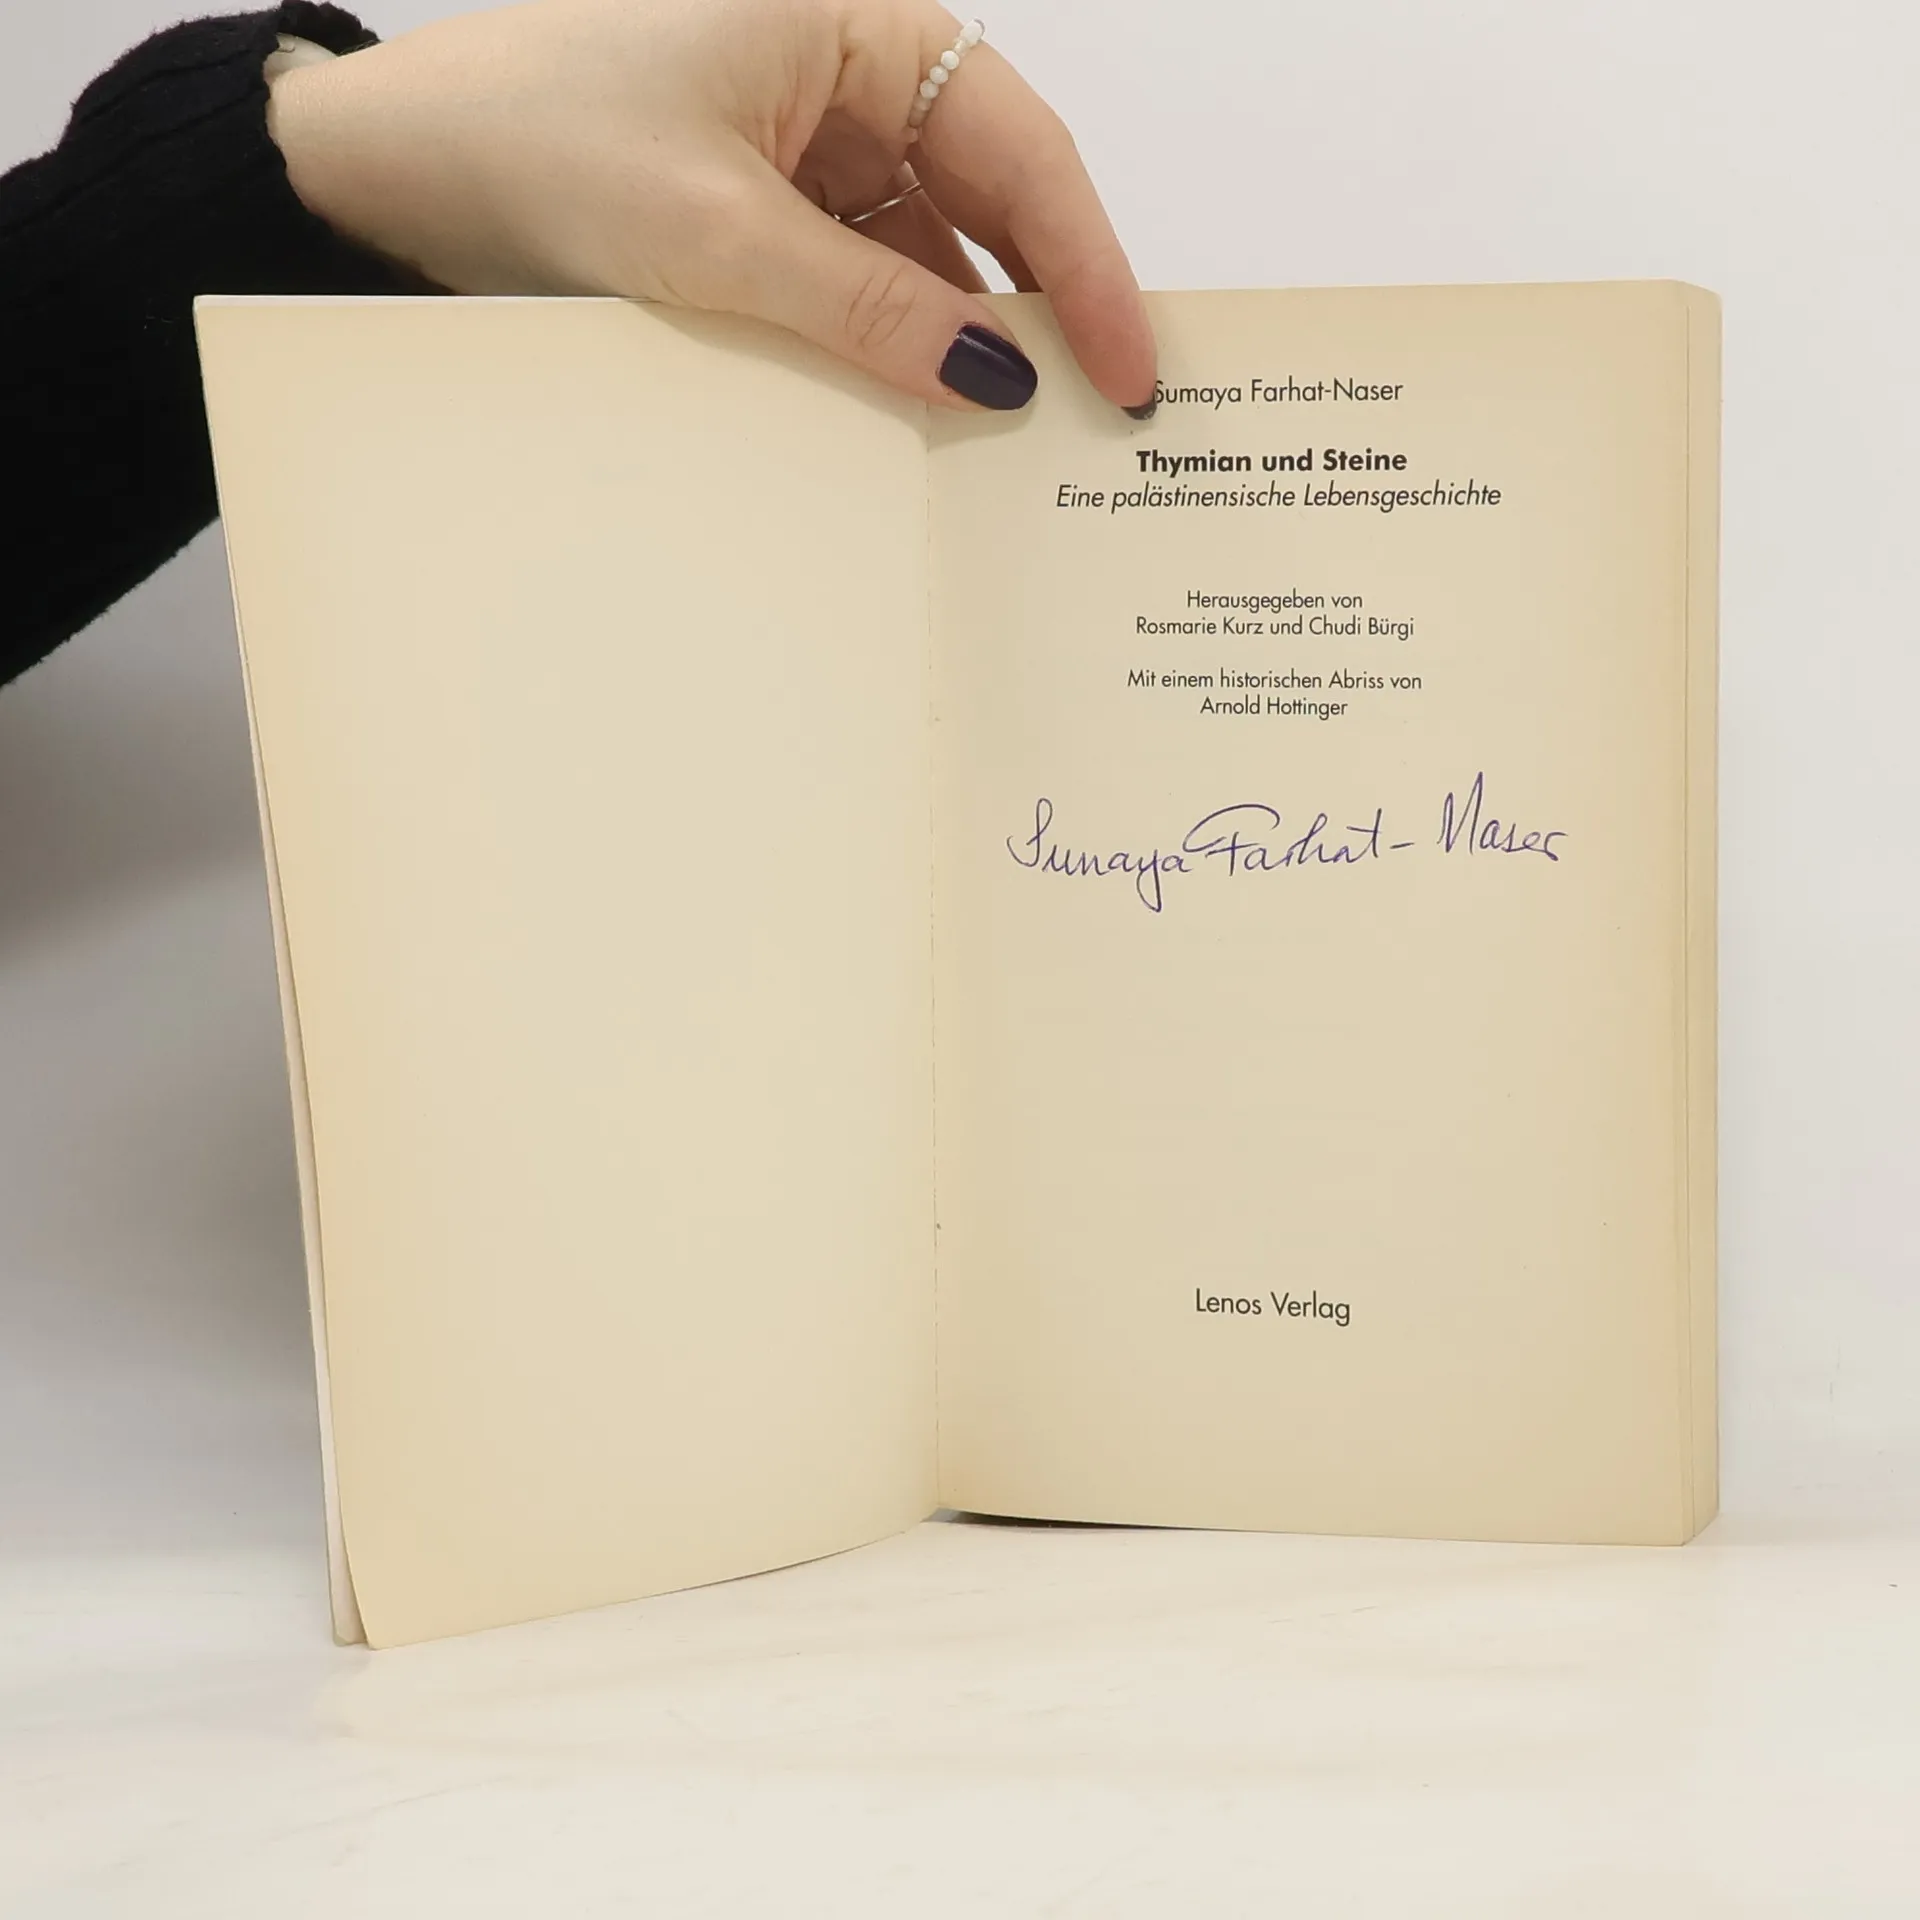 Sumaya Farhat-Naser
Thymian und Steine
Eine palästinensische Lebensgeschichte
Herausgegeben von
Rosmarie Kurz und Chudi Bürgi
Mit einem historischen Abriss von
Arnold Hottinger
Sumaya Farhat-Naser
Lenos Verlag